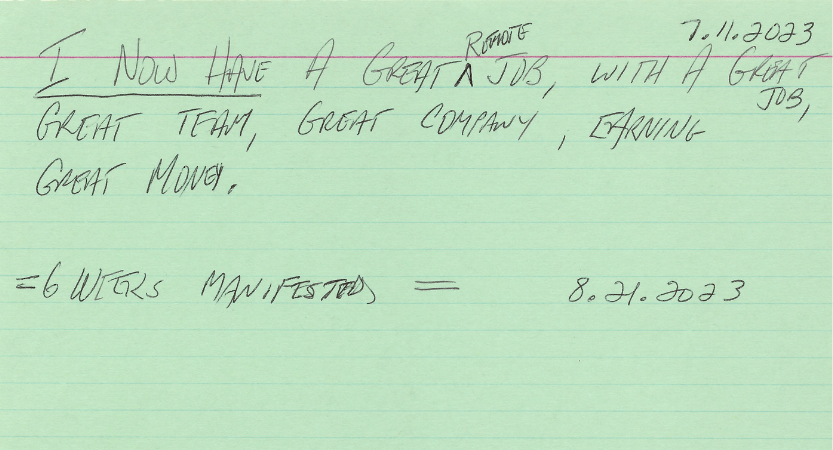 7.11.2023
I NOW HAVE A GREAT ^ REMOTE JOB, WITH A GREAT JOB,
GREAT TEAM, GREAT COMPANY, EARNING
GREAT MONEY.
=6 WEEKS MANIFESTED = 8.21.2023